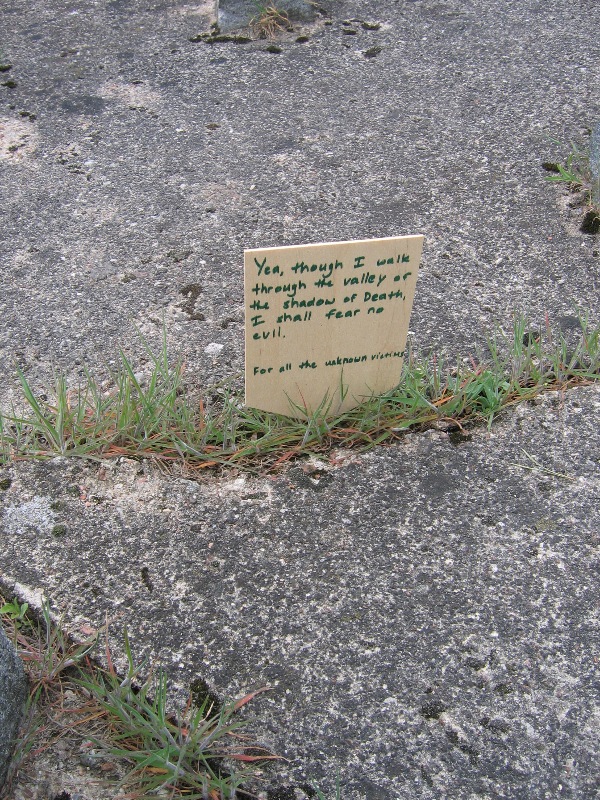 Yea, though I walk
through the valley or
the shadow of Death,
I shall fear no
evil.
For all the unknown victims